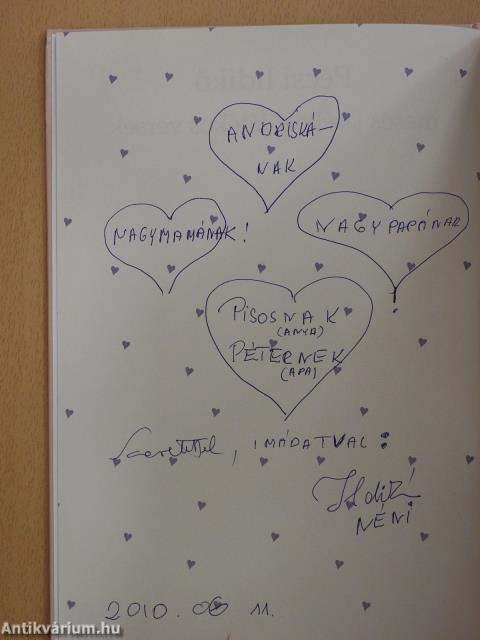 ANDRISKÁ-
NAK
NAGYMAMÁNAK!
NAGYPAPÁNAK!
PISOSNAK
(ANYA)
PÉTERNEK
(APA)
Szeretettel, IMÁDATVAL:
Ildikó
NÉNI
2010. 06 11.
Antikvárium.hu